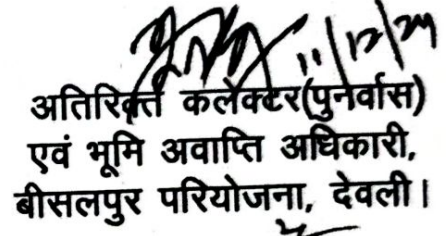 11/12/24
अतिरिक्त कलेक्टर(पुनर्वास)
एवं भूमि अवाप्ति अधिकारी,
बीसलपुर परियोजना, देवली।